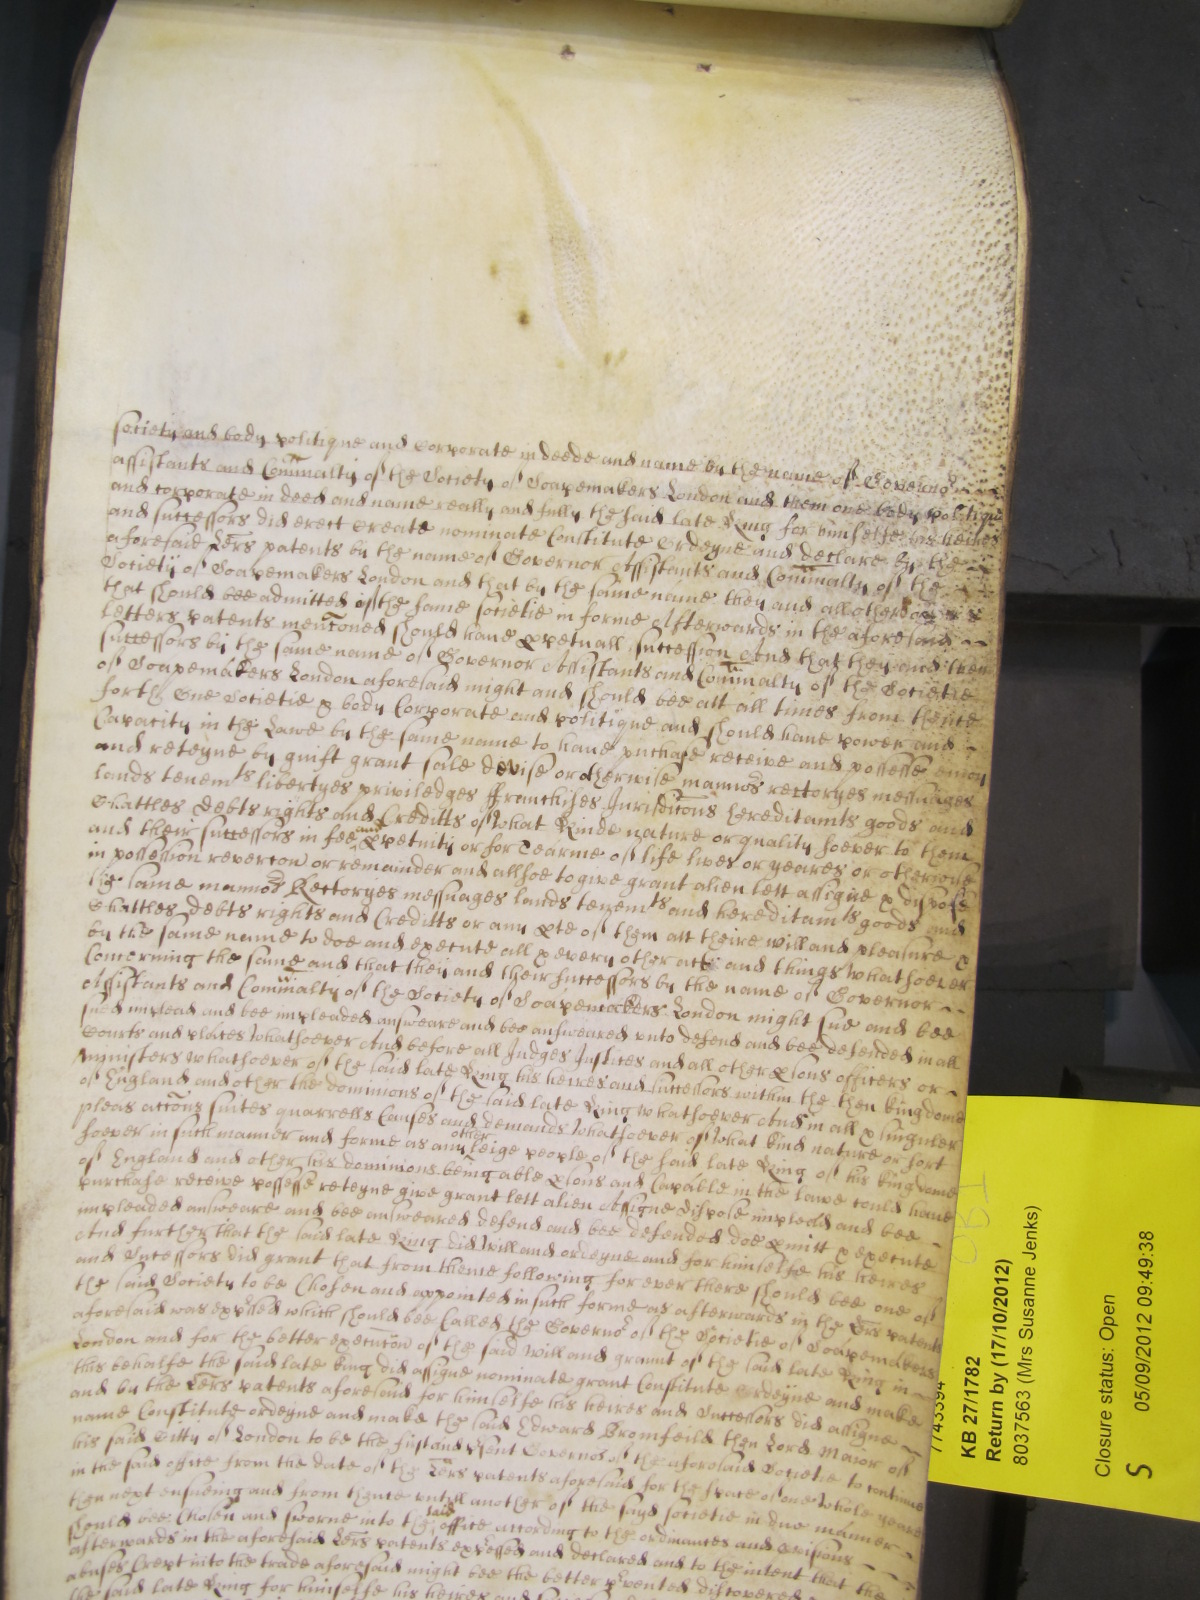 society and body politique and Corporate in deede and name by the name of Governor
assistants and Com̄nalty of the Society of Soapemakers London and them one body politique
and corporate in deed and name really and fully the said late King for himselfe his heires
and successors did erect create nominate Constitute Ordeyne and declare By the
aforesaid Lr̄es patents by the name of Governor Assistants and Com̄nalty of the
Society of Soapemakers London and that by the same name they and all others
that should bee admitted of the same societie in forme Afterwards in the aforesaid
letters patents menc̄oned should have ꝑpetuall succession And that they and their
successors by the same name of Governor Assistants and Com̄nalty of the Societie
of Soapemakers London aforesaid might and should bee att all times from thence
forth One Societie & body Corporate and politique and should have power and
Capacity in the Lawe by the same name to have purchase receive and possesse enioy
and reteyne by guift grant sale devise or otherwise mannors rectoryes messuages
lands tenemts libertyes priviledges ffranchises Jurisdicc̄ons hereditamts goods and
Chattles debts rights and Creditts of what Kinde nature or quality soever to them
and their successors in fee and ꝑpetuity or for Tearme of life lives or yeares or otherwise
in possession revercon or remainder and allsoe to give grant alien lett assigne & dispose
the same mannors Rectoryes messuages lands tenemts and hereditamts goods and
Chattles debts rights and Creditts or any ꝑte of them att theire will and pleasure &
by the same name to doe and execute all & every other acts and things whatsoever
Concerning the same and that they and their successors by the name of Governor
Assistants and Com̄nalty of the Society of Soapemakers London might sue and bee
sued implead and bee impleaded answeare and bee answeared unto defend and bee defended in all
Courts and places whatsoever And before all Judges Justices and all other ꝑsons officers or
Ministers whatsoever of the said late King his heires and successors within the then kingdome
of England and other the dominions of the said late King whatsoever And in all & singuler
pleas acc̄ons suites quarrells Causes and demands whatsoever of what kind nature or sort
soever in such manner and forme as any other leige people of the said late King of his kingdome
of England and other his dominions being able ꝑsons and Capable in the lawe could have
purchase receive possesse reteyne give grant lett alien Assigne dispose implead and bee
impleaded answeare and bee answeared defend and bee defended doe ꝑmitt & execute
And further that the said late King did will and ordeyne and for himselfe his heires
and Successors did grant that from thence following for ever there should bee one of
the said Society to be Chosen and appointed in such forme as afterwards in the Lr̄es patents
aforesaid was exp̄ssed which should bee Called the Governor of the Societie of Soapemakers
London and for the better execuc̄on of the said will and graunt of the said late King in
this behalfe the said late King did assigne nominate grant Constitute Ordeyne and make
and by the Lr̄es patents aforesaid for himselfe his heires and Successors did assigne
name Constitute ordeyne and make the said Edward Bromfeild then Lord Maior of
his said Citty of London to be the first and p̄sent Governor of the aforesaid Societie to continue
in the said office from the date of the Lr̄es patents aforesaid for the space of one whole yeare
then next ensueing and from thence untill another of the sayd societie in due manner
should bee Chosen and sworne into the said office according to the ordinances and
afterwards in the aforesaid Lr̄es patents exp̄ssed and declared and to the intent that the
abuses Crept into the trade aforesaid might bee the better p̄vented discovered
the said late King for himselfe his heires and
7743394
KB 27/1782
Return by (17/10/2012)
8037563 (Mrs Susanne Jenks)
Closure status: Open
S 05/09/2012 09:49:38